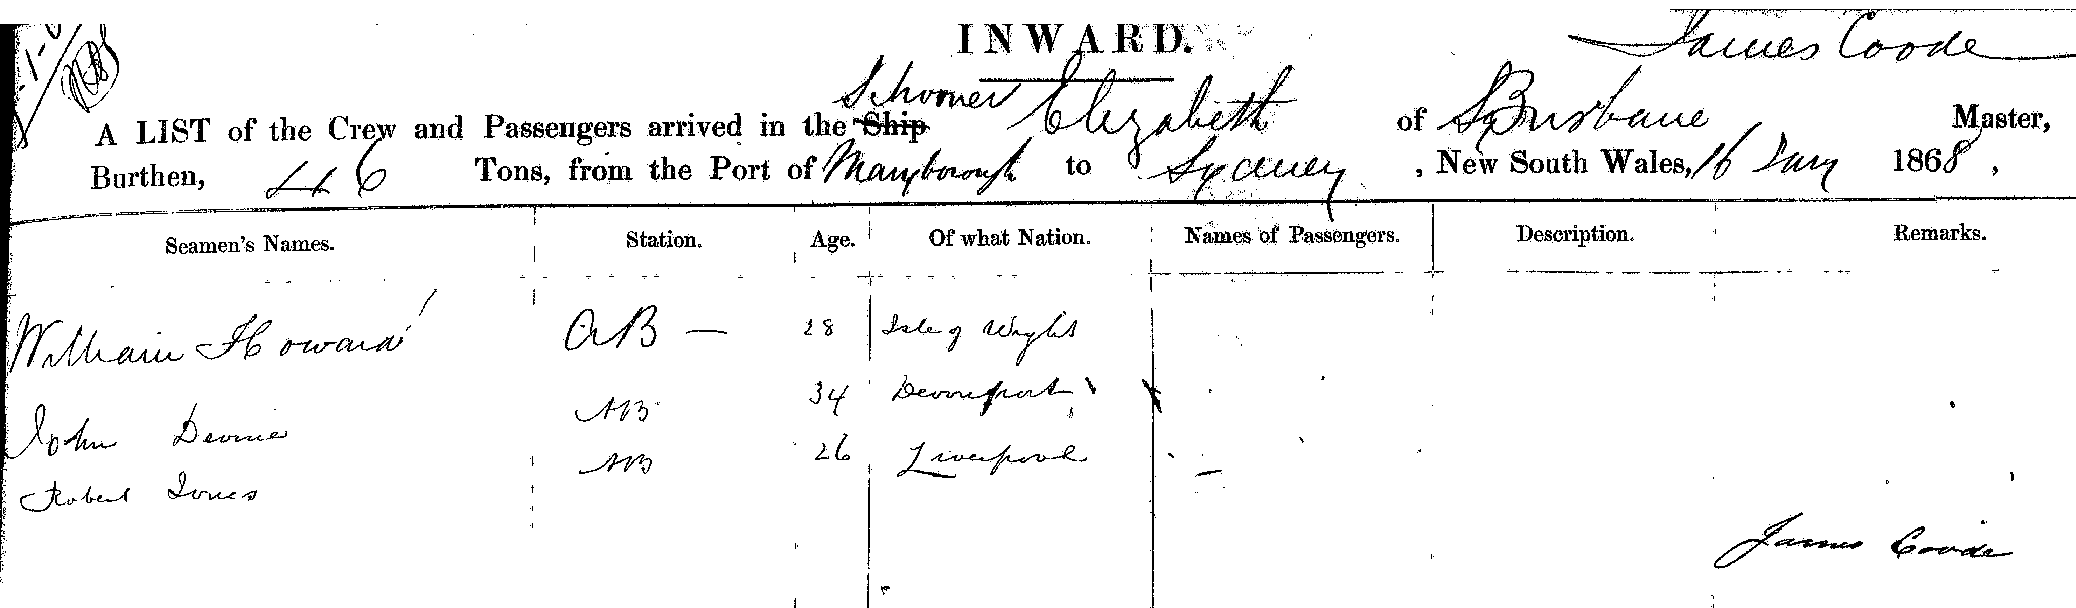 INWARD.
James Coode
Schooner
A LIST of the Crew and Passengers arrived in the Ship Elizabeth of Brisbane Master,
Burthen, 46 Tons, from the Port of Maryborough to Sydney, New South Wales, 16 Jany 1868,
Seamen's Names. Station. Age. Of what Nation. Names of Passengers. Description. Remarks.
William Howard AB — 28 Isle of Wight
John Devine AB 34 Devonport
Robert Jones AB 26 Liverpool —
James Coode